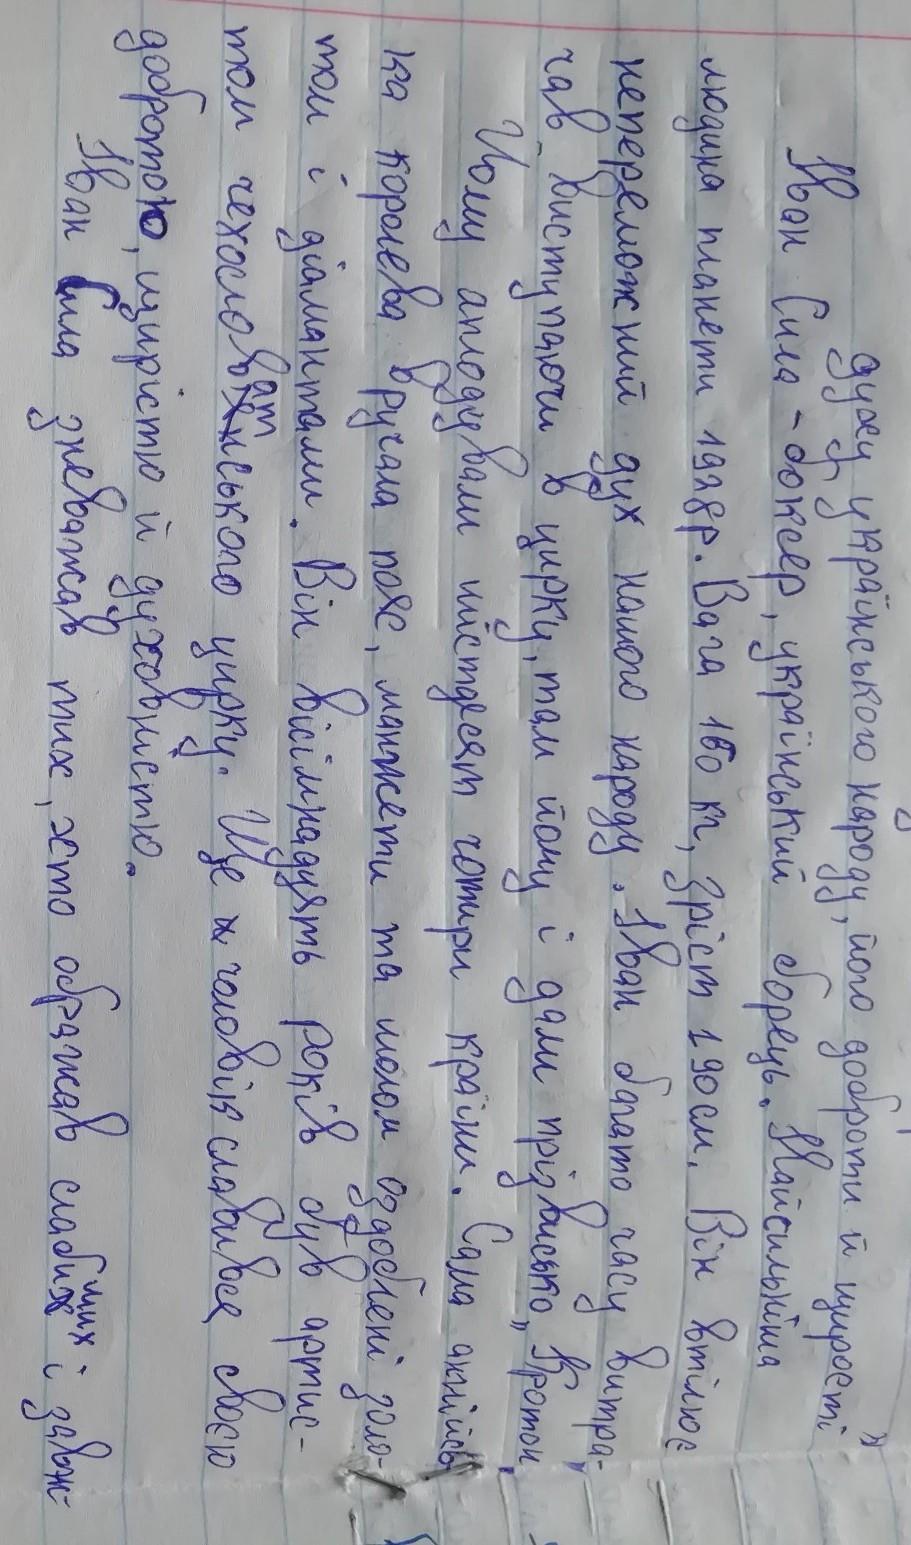 духу українського народу, його доброти й щирості
Іван Сила - боксер, український борець. Найсильніша
людина планети 1928р. Вага 160 кг, зріст 190см. Він втілює
непереможний дух нашого народу. Іван багато часу витра-
чав виступаючи в цирку, там йому і дали прізвисько „Кротон".
Йому аплодували шістдесят чотири країни. Сама англійсь-
ка королева вручала пояс, манжети та шолом оздоблені золо-
том і діамантами. Він вісімнадцять років був артис-
том чехословатського цирку. Ще ж чоловік славився своєю
добротою, щирістю й духовністю.
Іван Сила зневажав тих, хто ображав слабиших і завж-